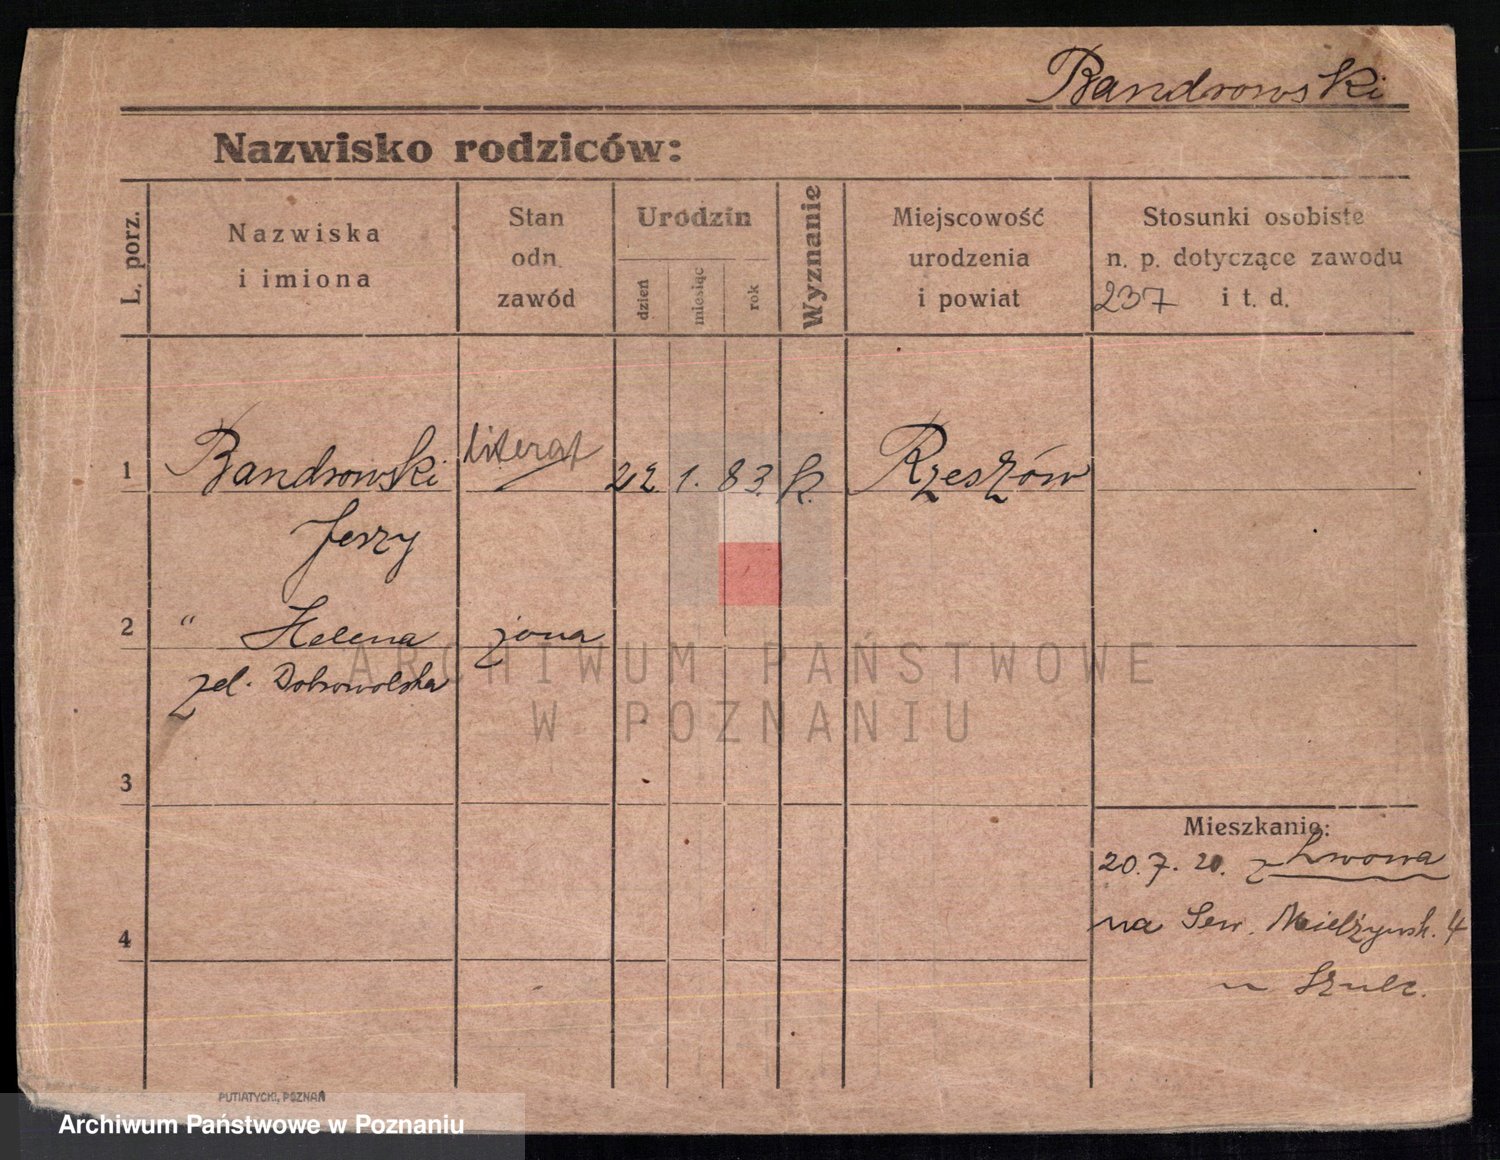 Bandrowski
Nazwisko rodziców:
L. porz.
Nazwiska
i imiona
Stan
odn.
zawód
Urodzin
dzień
miesiąc
rok
Wyznanie
Miejscowość
urodzenia
i powiat
Stosunki osobiste
n. p. dotyczące zawodu
237 i t. d.
1 Bandrowski literat 22. 1. 83. k. Rzeszów
Jerzy
2 " Helena żona
zel. Dobrowolska
3
Mieszkanie:
20.7.20. z Lwowa
4
na Sew. Mielżyńsk. 4
u Szulc.
PUTIATYCKI, POZNAŃ
ARCHIWUM PAŃSTWOWE
W POZNANIU
Archiwum Państwowe w Poznaniu